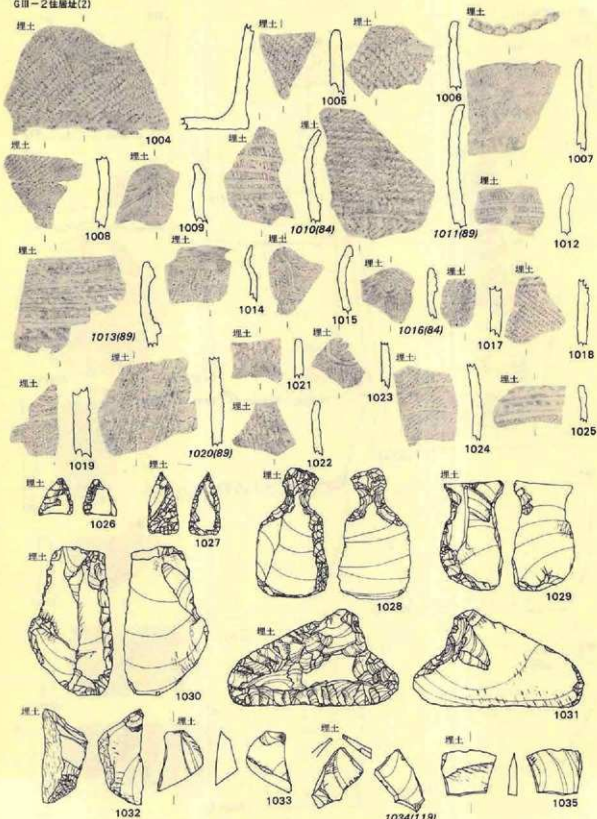 GⅢ-2住居址(2)
埋土 埋土 埋土 埋土
1004 1005 1006 1007
埋土 埋土 埋土 埋土 埋土
1008 1009 1010(84) 1011(89) 1012
埋土 埋土 埋土 埋土 埋土 埋土
1013(89) 1014 1015 1016(84) 1017 1018
埋土 埋土 埋土 埋土 埋土 埋土 埋土
1019 1020(89) 1021 1022 1023 1024 1025
埋土 埋土 埋土 埋土
1026 1027 1028 1029
埋土 埋土
1030 1031
埋土 埋土 埋土 埋土
1032 1033 1034(119) 1035